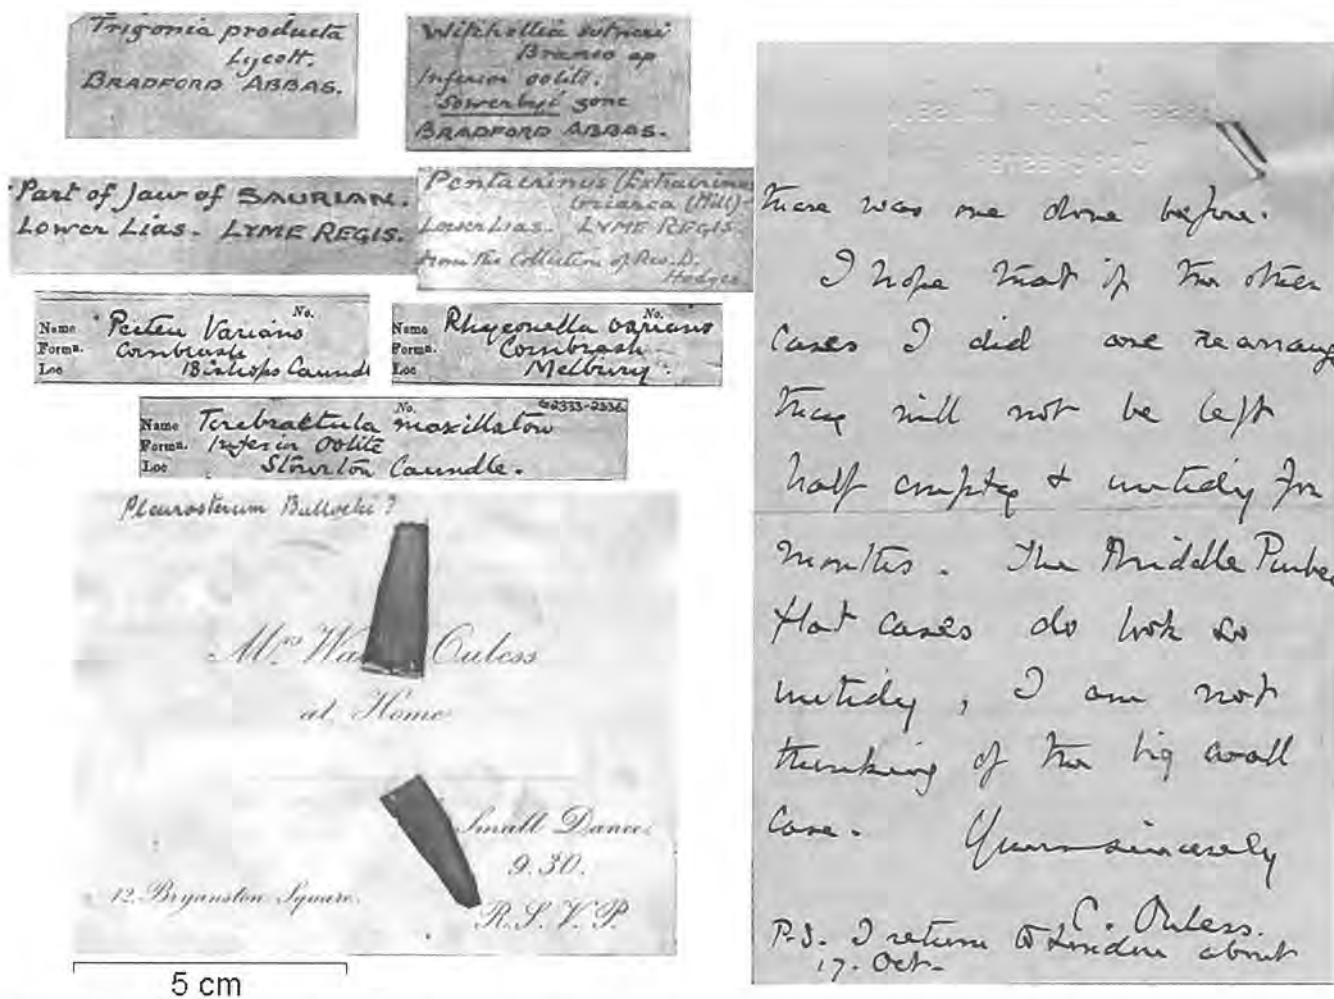 Trigonia producta
Lycett.
BRADFORD ABBAS.
Witchellia sutneri
Branco sp
Inferior oolite.
Sowerbyi zone
BRADFORD ABBAS.
Part of Jaw of SAURIAN.
Lower Lias. LYME REGIS.
Pentacrinus (Extracrinus
briarea (Mill)
Lower Lias. LYME REGIS.
from the Collection of Rev. D.
Hodges
No.
Name Pecten Varians
Formn. Cornbrash
Loc Bishops Caundl
No.
Name Rhyconella varians
Formn. Cornbrash
Loc Melbury.
No. G2333-2336
Name Terebraktula
Formn. Inferior Oolite
Loc Stourton Caundle.
Pleurosternum Bullocki?
Mrs Wa Ouless
at Home
Small Dance.
9.30.
12. Bryanston Square.
R.S.V.P.
5 cm
there was one done before.
I hope that if the other
cases I did are rearrang
they will not be left
half empty & untidy for
months. The Middle Purbe
flat cases do look so
untidy, I am not
thinking of the big wall
case. Yours sincerely
C. Ouless.
P.S. I return to London about
17. Oct.